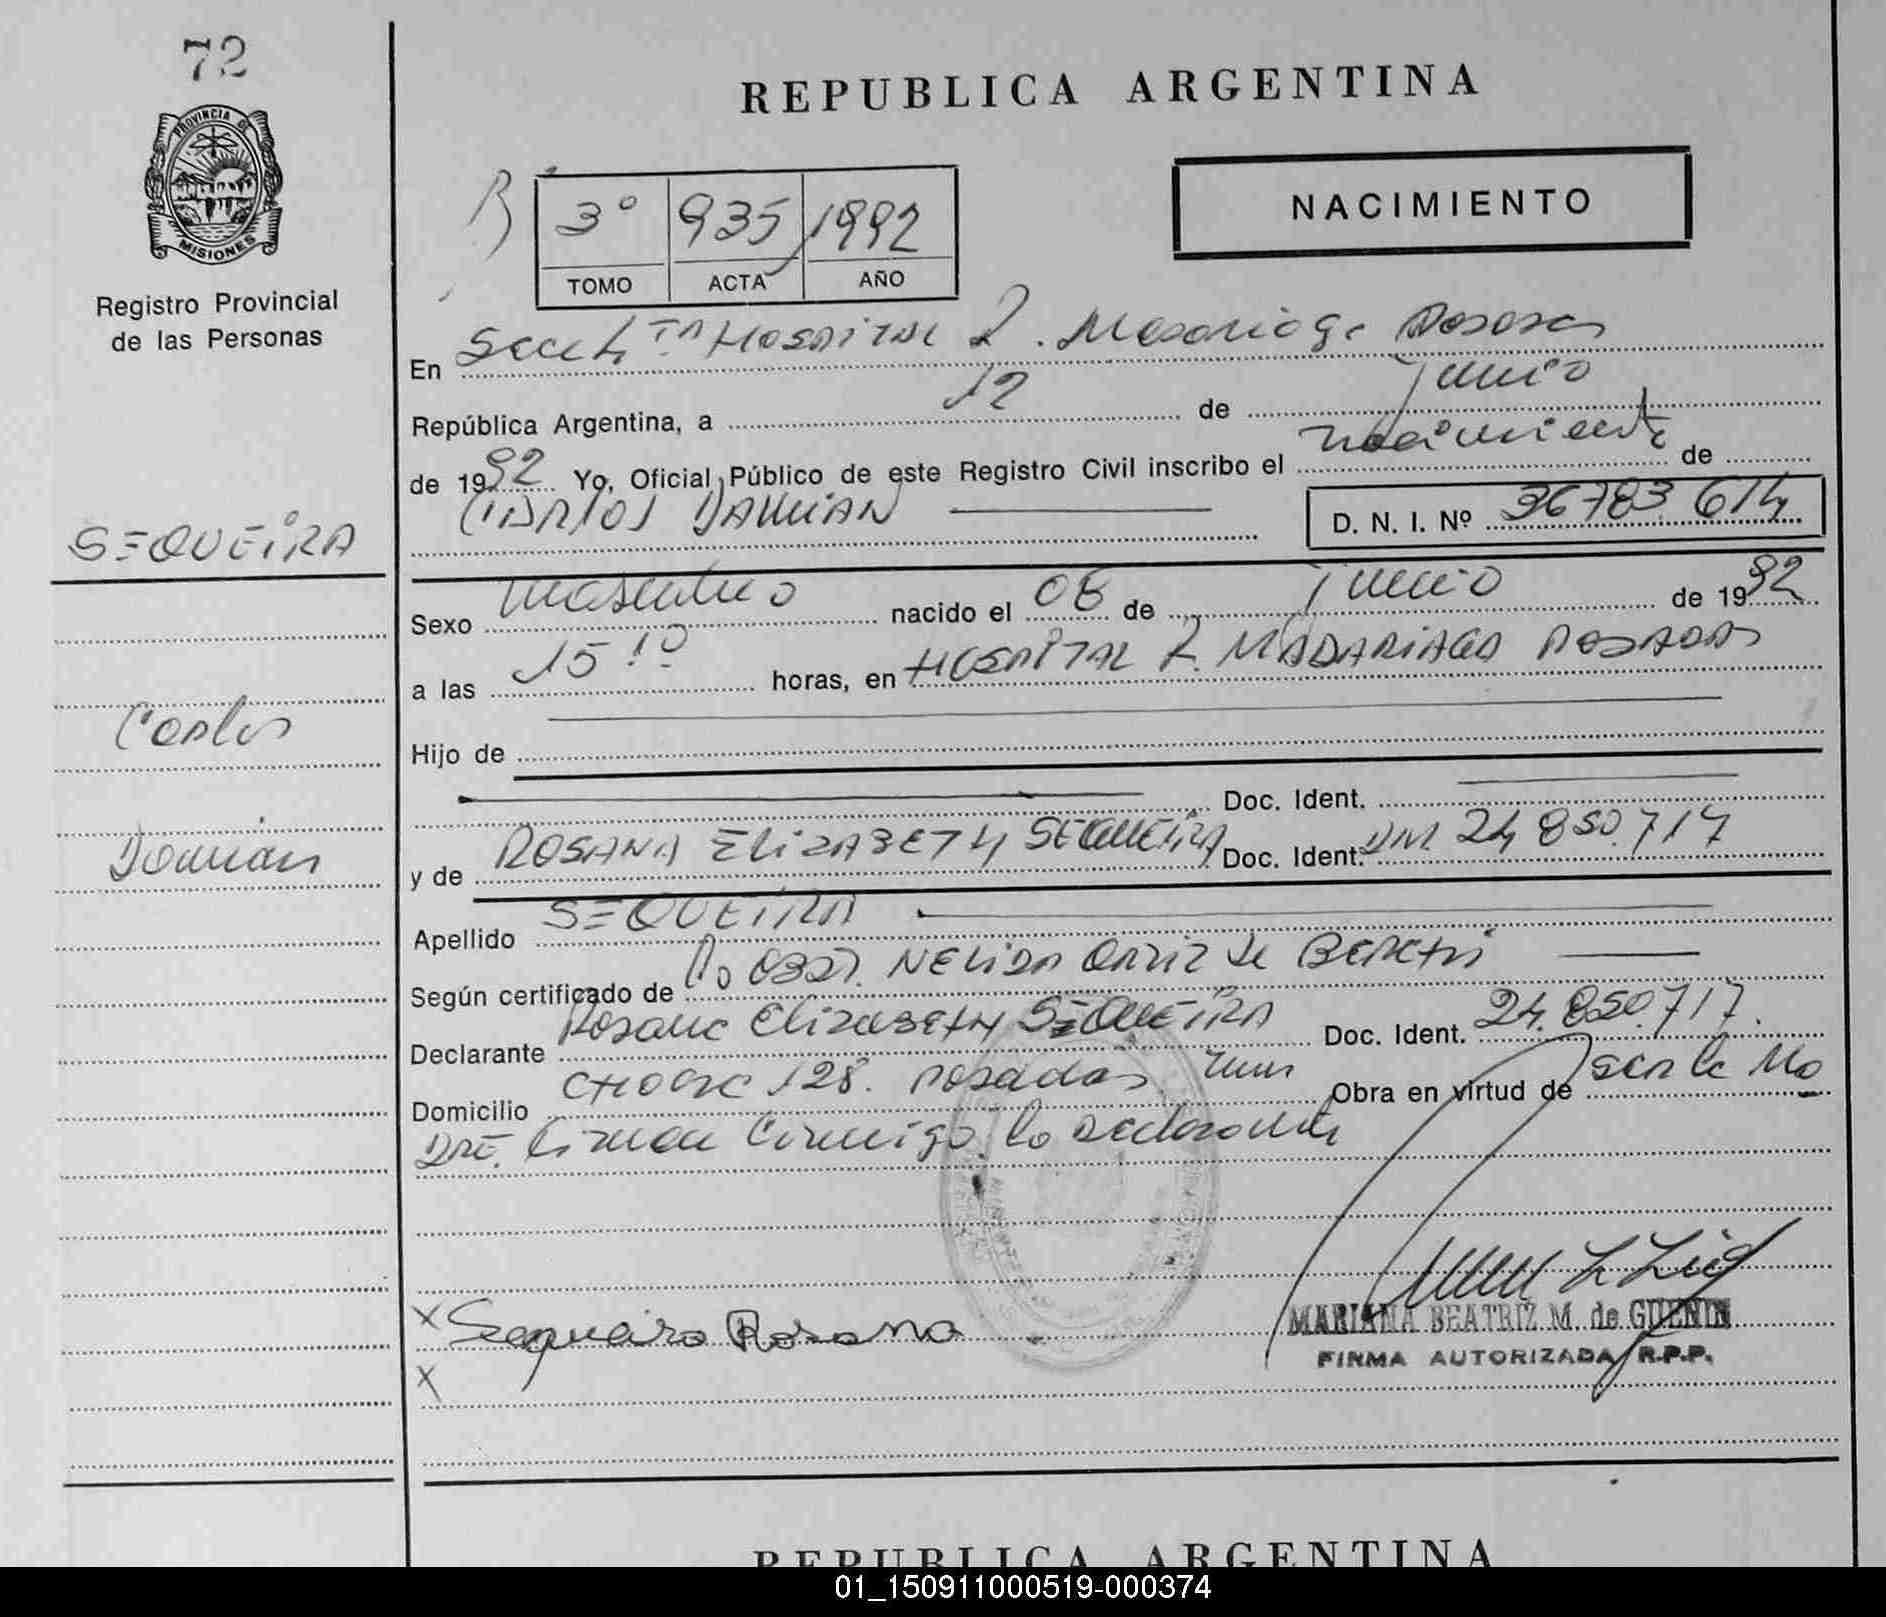 72
PROVINCIA DE
MISIONES
Registro Provincial
de las Personas
REPUBLICA ARGENTINA
NACIMIENTO
3º 935 1992
TOMO ACTA AÑO
En HOSPITAL R. Posadas
República Argentina, a 12 de junio
de 1992 Yo, Oficial Público de este Registro Civil inscribo el nacimiento de
CARLOS DAMIAN
D. N. I. Nº 36783614
SEQUEIRA
Carlos
Damian
Sexo masculino nacido el 08 de junio de 1992
a las 15 10 horas, en HOSPITAL R. MADARIAGA POSADAS
Hijo de
Doc. Ident.
y de ROSANA ELIZABETH SEQUEIRA Doc. Ident. 24 850.717
Apellido SEQUEIRA
Según certificado de NELIDA ORTIZ de
Declarante Rosana ELIZABETH SEQUEIRA Doc. Ident. 24.850.717.
Domicilio 128. Posadas Obra en virtud de ser la Ma
DRE. Firman Conmigo. la Declarante
X Sequeira Rosana
X
MARIANA BEATRIZ M. de GUENIN
FIRMA AUTORIZADA R.P.P.
REPUBLICA ARGENTINA
01_150911000519-000374